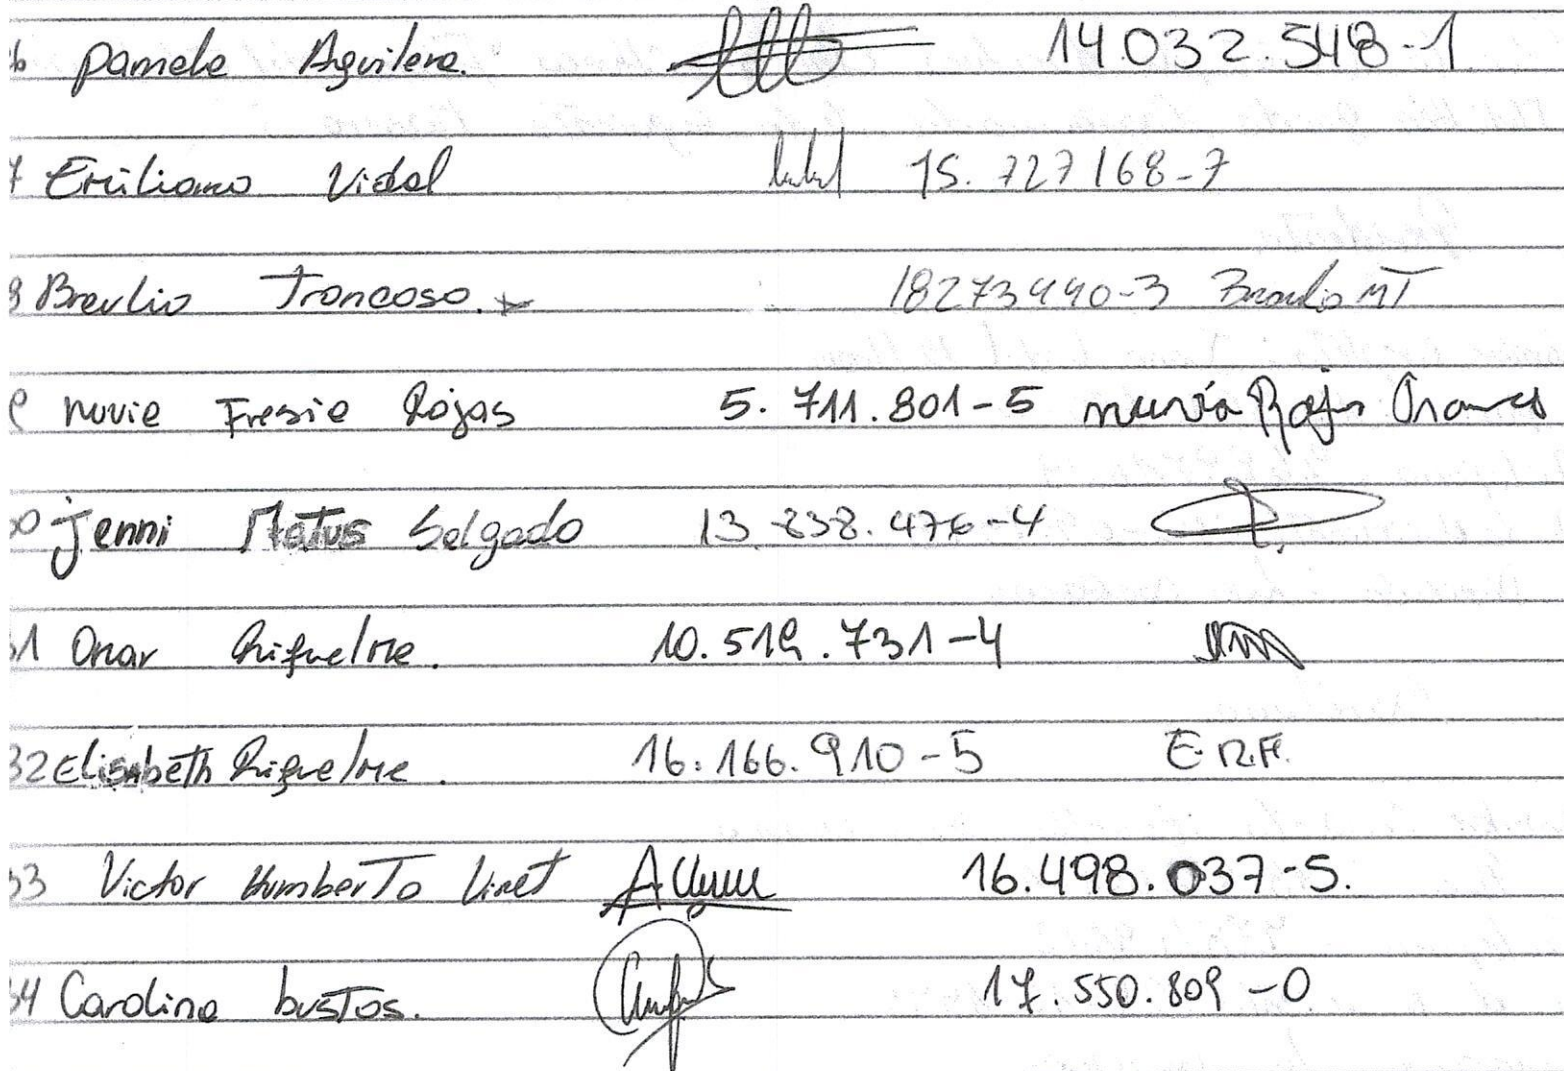 Pamela Aguilera. 14.032.548-1
Emiliano Vidal 15.727168-7
Braulio Troncoso. 18273440-3 Braulio MT
Nuvia Fresia Rojas 5.711.801-5 Nuvia Rojas
Jenni Matus Salgado 13.238.476-4
31 Omar Riquelme. 10.519.731-4
32 Elisabeth Riquelme. 16.166.910-5 E.R.F.
33 Victor Humberto 16.498.037-5.
34 Carolina bustos. 17.550.809-0